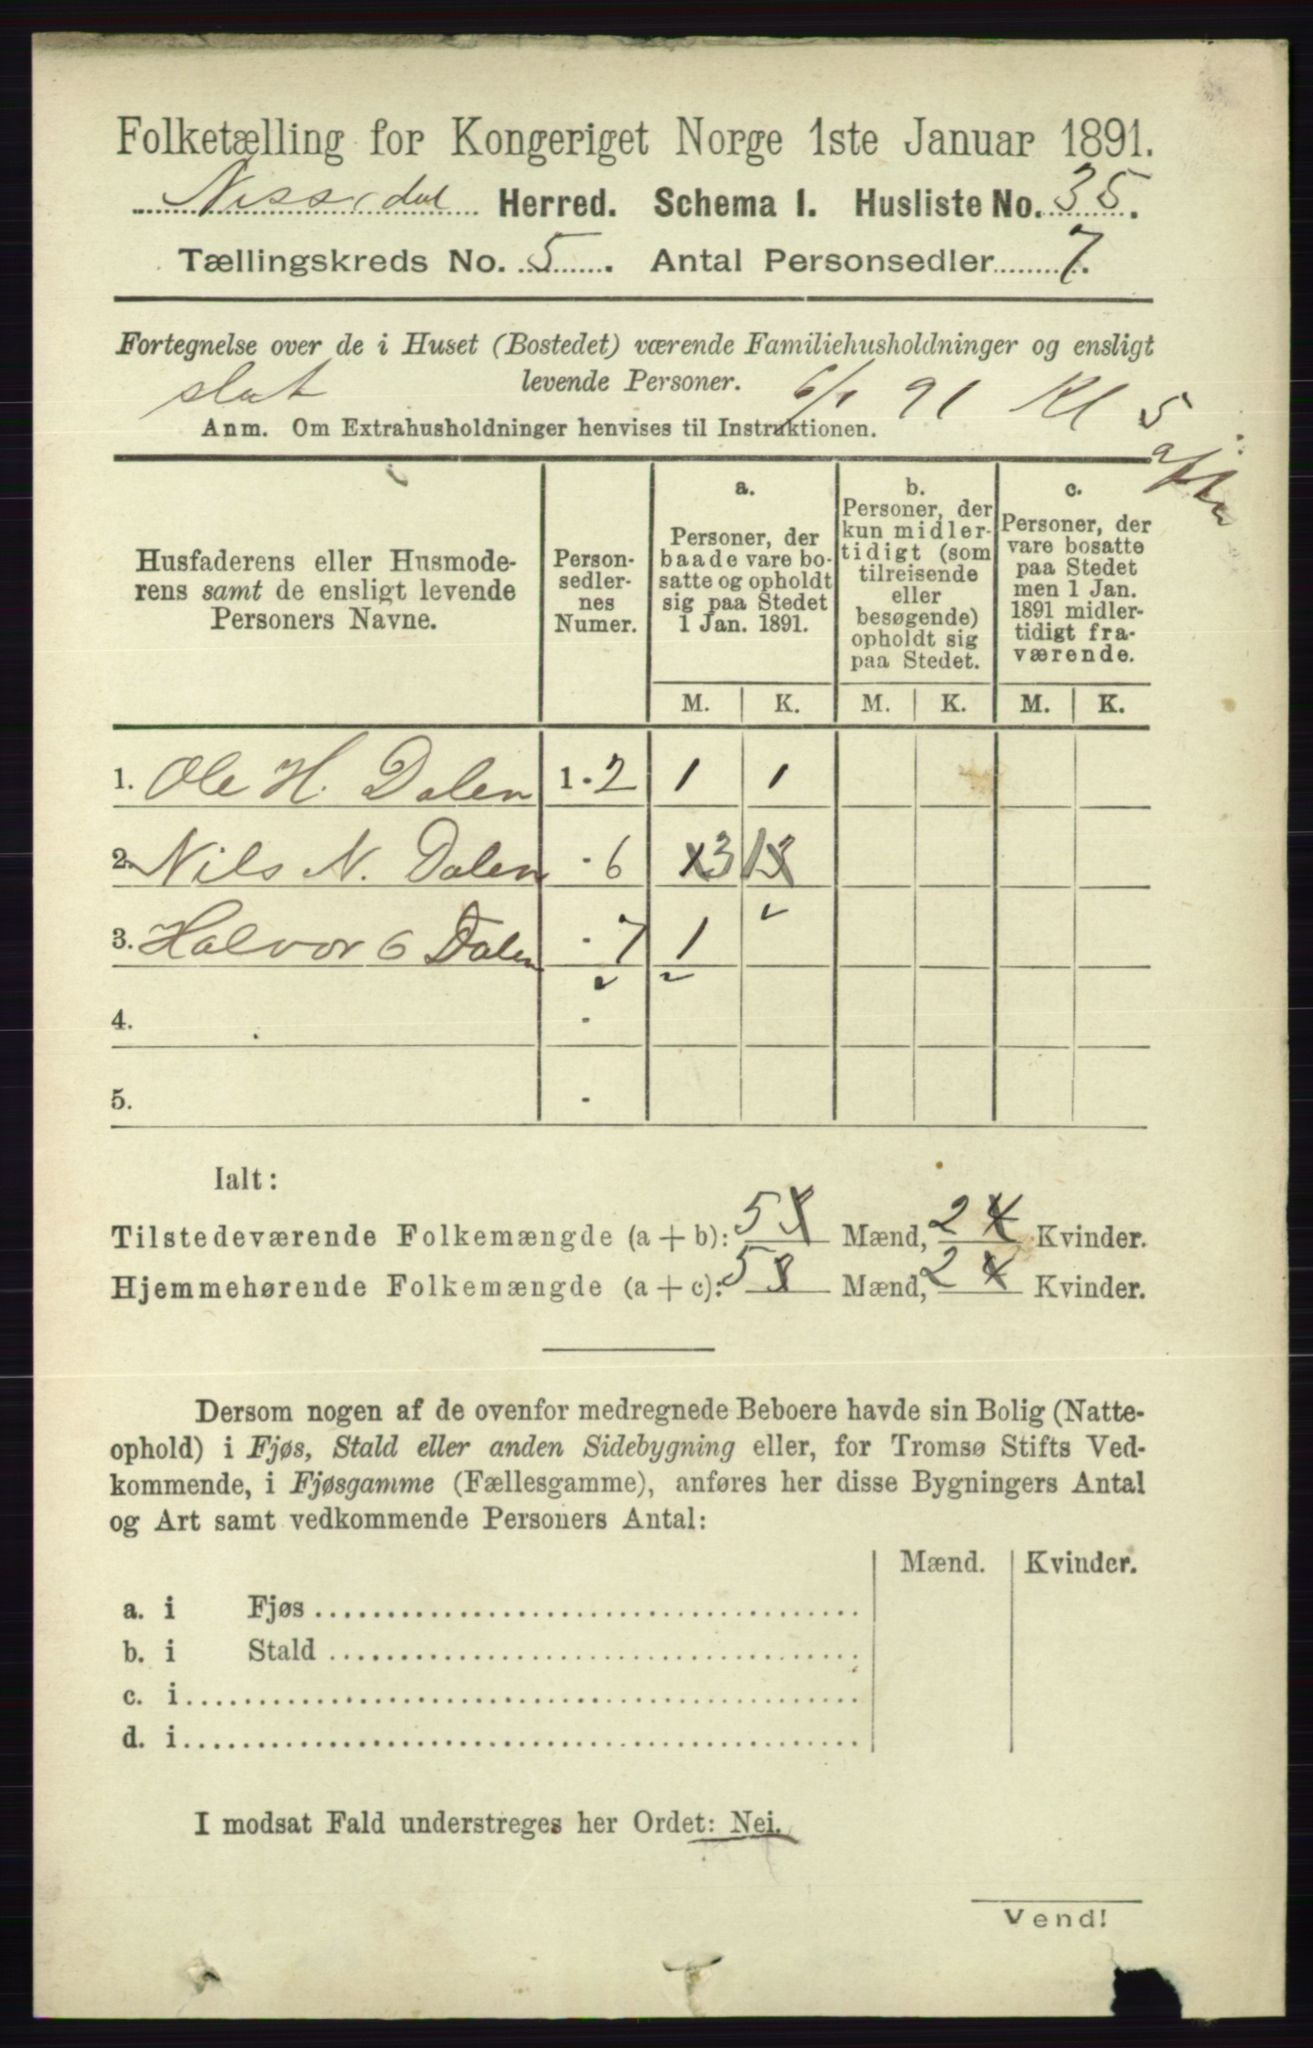 Folketælling for Kongeriget Norge 1ste Januar 1891.
Nissedal Herred. Schema I. Husliste No. 35.
Tællingskreds No. 5. Antal Personsedler 7.
Fortegnelse over de i Huset (Bostedet) værende Familiehusholdninger og ensligt
levende Personer.
slut 6/1 91 Kl 5
Anm. Om Extrahusholdninger henvises til Instruktionen.
Husfaderens eller Husmoderens samt de ensligt levende Personers Navne.
Personsedlernes Numer.
a.
Personer, der
baade vare bo-
satte og opholdt
sig paa Stedet
1 Jan. 1891.
b.
Personer, der
kun midler-
tidigt (som
tilreisende
eller
besøgende)
opholdt sig
paa Stedet.
c.
Personer, der
vare bosatte
paa Stedet
men 1 Jan.
1891 midler-
tidigt fra-
værende.
M. K. M. K. M. K.
1. Ole H. Dalen 1 - 2 1 1
2. Nils N. Dalen - 6 3 1
3. Halvor G Dalen - 7 1
4. -
5. -
Ialt:
Tilstedeværende Folkemængde (a + b): 5 Mænd, 2 4 Kvinder.
Hjemmehørende Folkemængde (a + c): 5 Mænd, 2 4 Kvinder.
Dersom nogen af de ovenfor medregnede Beboere havde sin Bolig (Natte-
ophold) i Fjøs, Stald eller anden Sidebygning eller, for Tromsø Stifts Ved-
kommende, i Fjøsgamme (Fællesgamme), anføres her disse Bygningers Antal
og Art samt vedkommende Personers Antal:
Mænd. Kvinder.
a. i Fjøs
b. i Stald
c. i
d. i
I modsat Fald understreges her Ordet: Nei.
Vend!